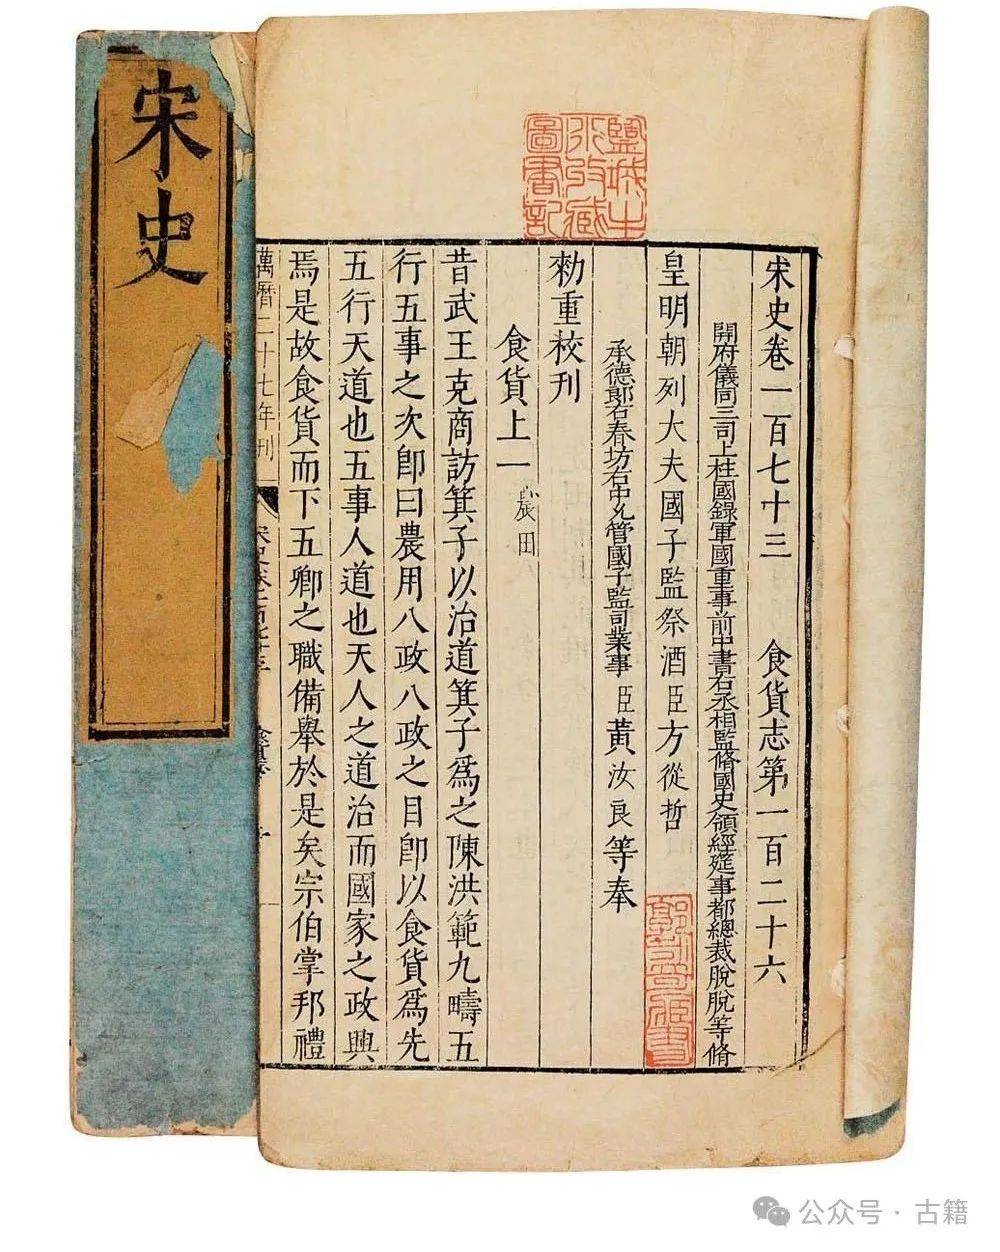 宋史
鹽城士
沁收藏
圖書記
宋史卷一百七十三　食貨志第一百二十六
開府儀同三司上柱國錄軍國重事前中書右丞相監脩國史領經筵事都總裁脫脫等脩
皇明朝列大夫國子監祭酒臣方從哲
承德郎右春坊右中允管國子監司業事臣黃汝良等奉
勑重校刊
食貨上一　農田
昔武王克商訪箕子以治道箕子為之陳洪範九疇五
行五事之次即曰農用八政八政之目即以食貨為先
五行天道也五事人道也天人之道治而國家之政興
焉是故食貨而下五卿之職備舉於是矣宗伯掌邦禮
萬曆二十七年刊
宋史卷一百七十三
食貨志
公众号·古籍